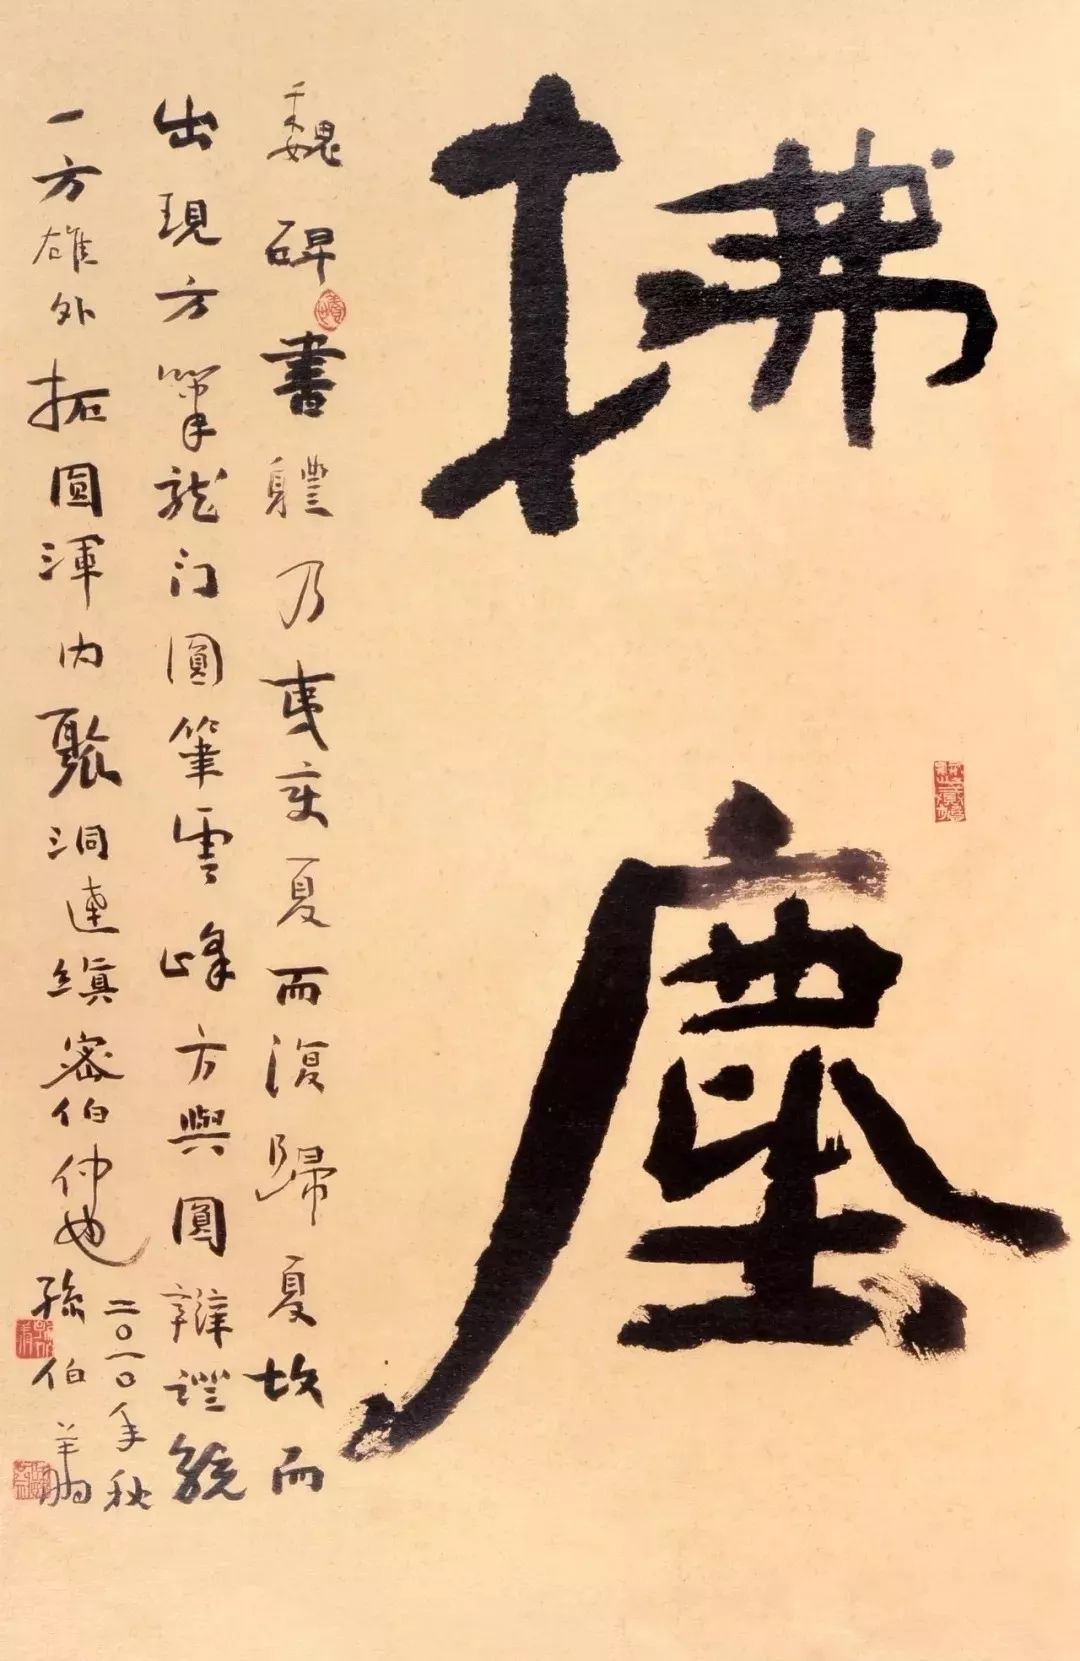 拂塵
魏碑書軆乃夷变夏而復歸夏故而
出現方筆龍门圓筆雲峰方與圓辯證統
一方雄外拓圓渾内聚洞達縝密伯仲也
二〇一〇年秋
孫伯翔